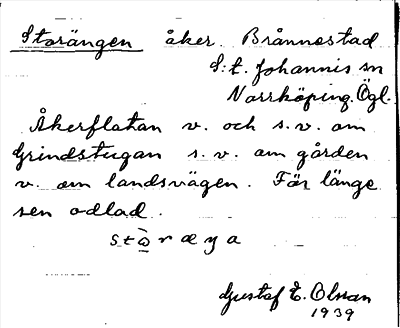 Storängen åker. Brånnestad
S:t. Johannis sn
Norrköping. Ögl.
Åkerflatan v. och s.v. om
Grindstugan s.v. om gården
v. om landsvägen. För länge
sen odlad.
Gustaf E. Olsson
1939